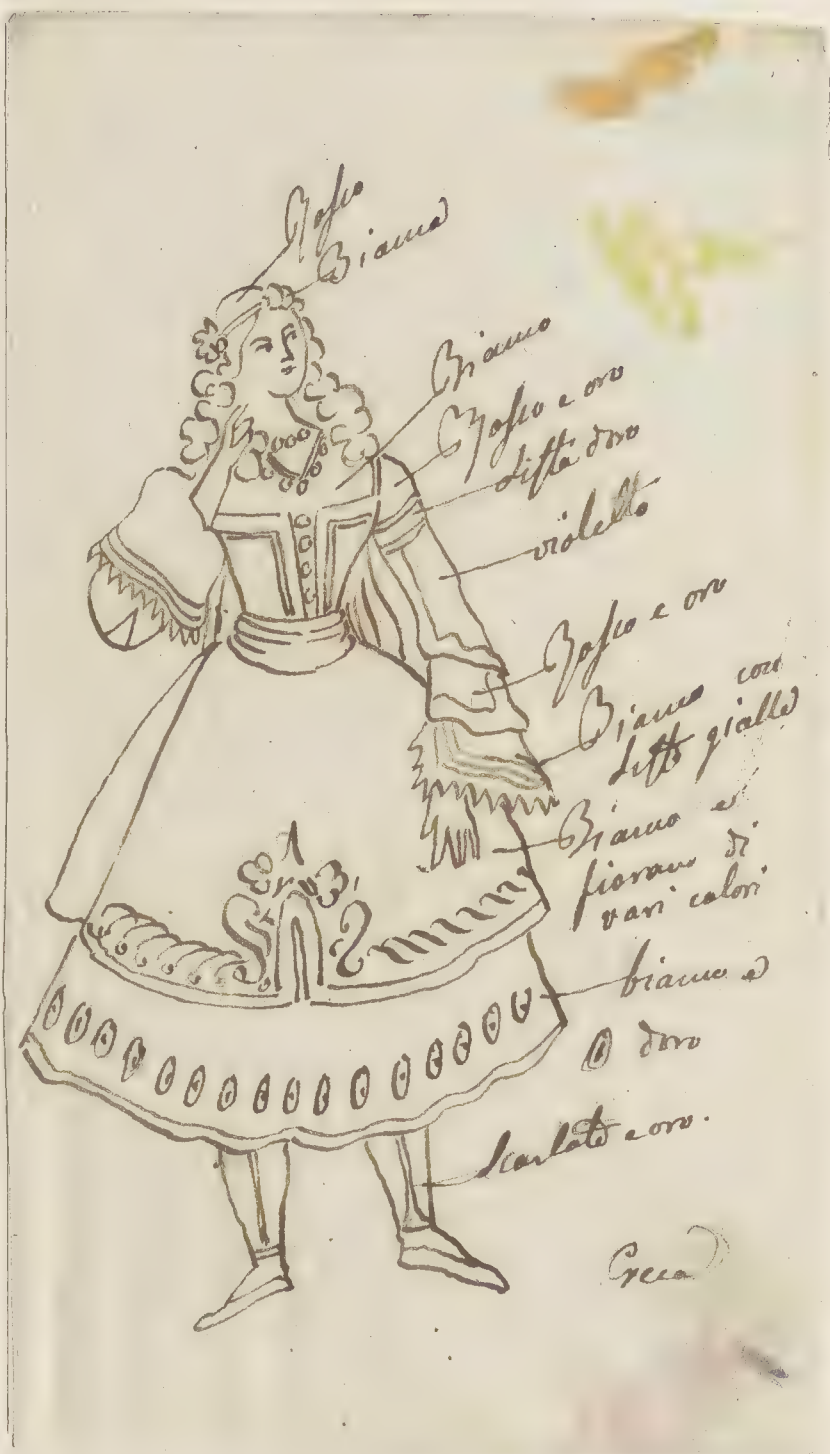 Rosso
Bianco
Bianco
Rosso e oro
liste d'oro
violetto
Rosso e oro
Bianco con
liste gialle
Bianco e
fiorami di
vari colori
bianco e
O doro
Scarlato e oro.
Greca